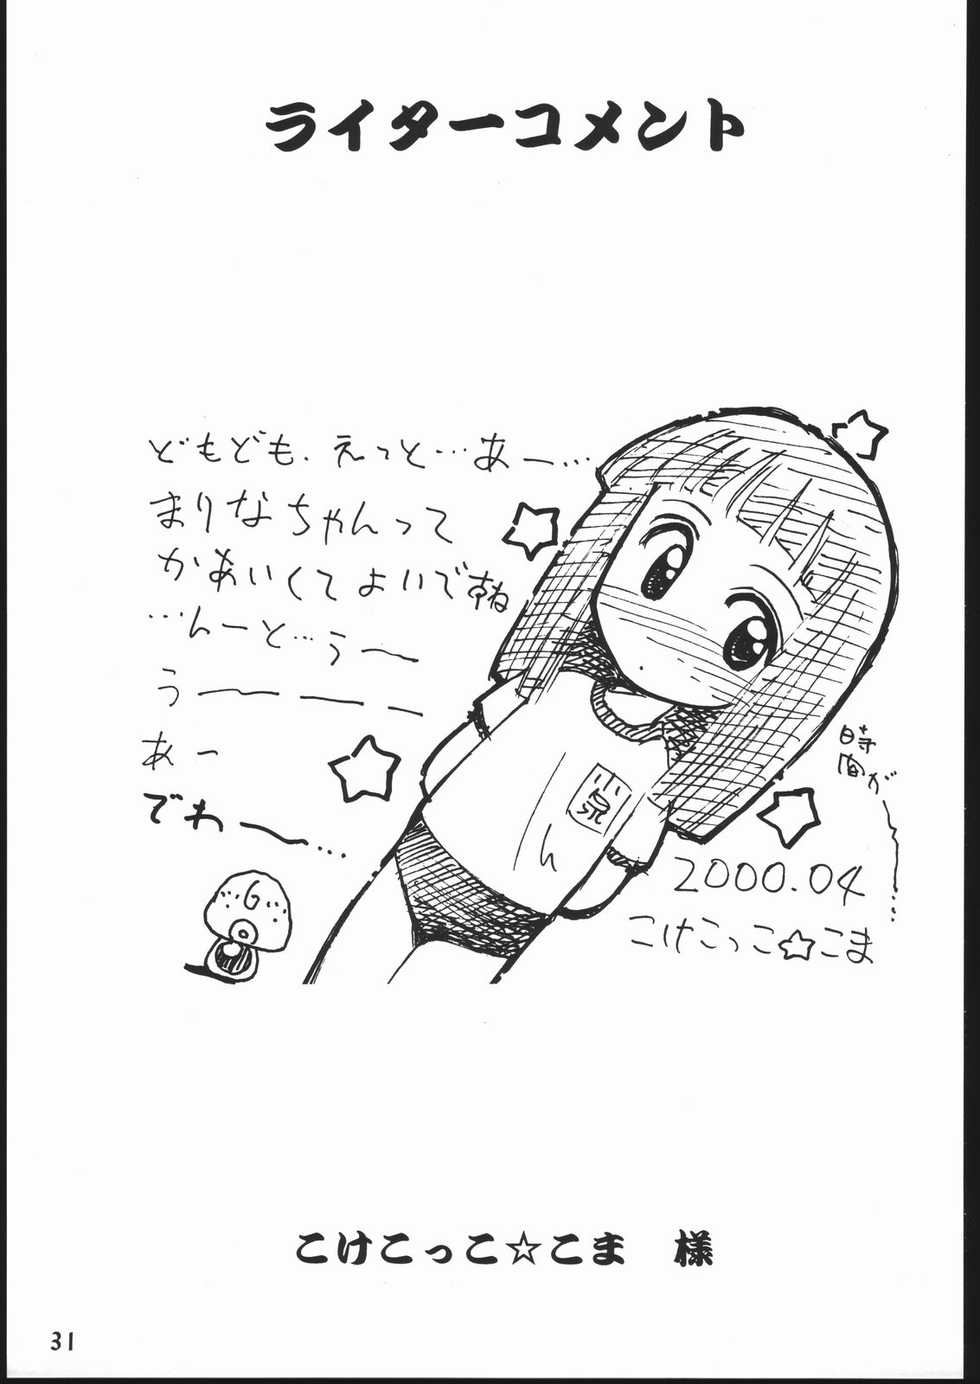 ライターコメント
どもども、えっと…あー…
まりなちゃんって
かあいくてよいですね
…んーと…うー
うーーー
あー
でわー…
時間がー……
小泉
G
2000.04
こけこっこ☆こま
こけこっこ☆こま 様
31